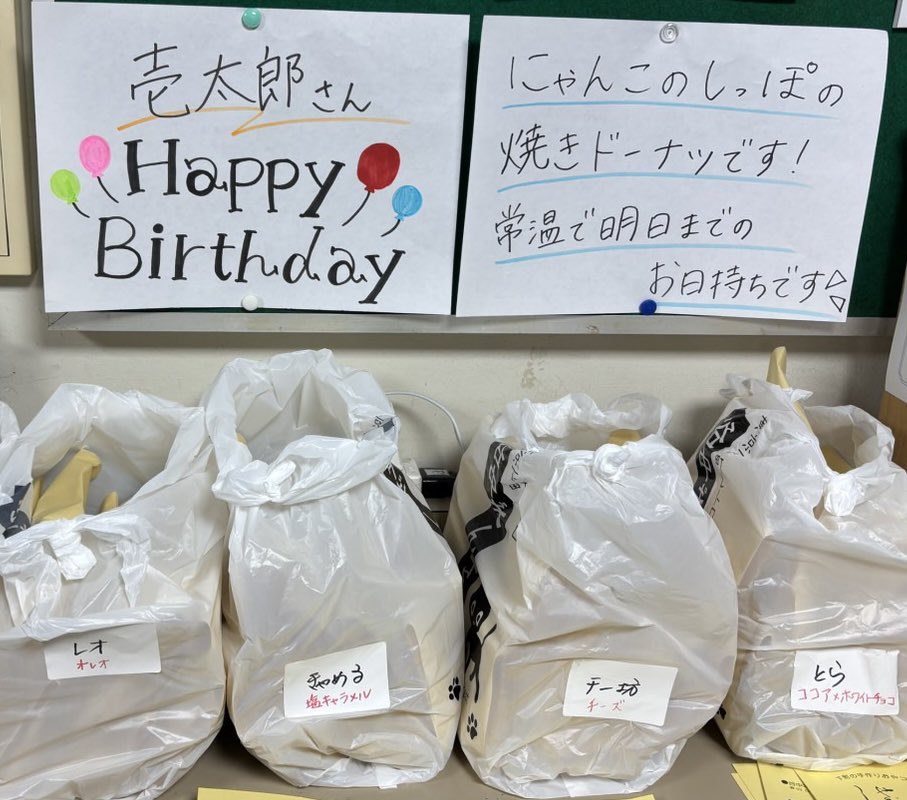 壱太郎さん
Happy
Birthday
にゃんこのしっぽの
焼きドーナツです!
常温で明日までの
お日持ちです
レオ
オレオ
きゃめる
塩キャラメル
チー坊
チーズ
とら
ココア×ホワイトチョコ